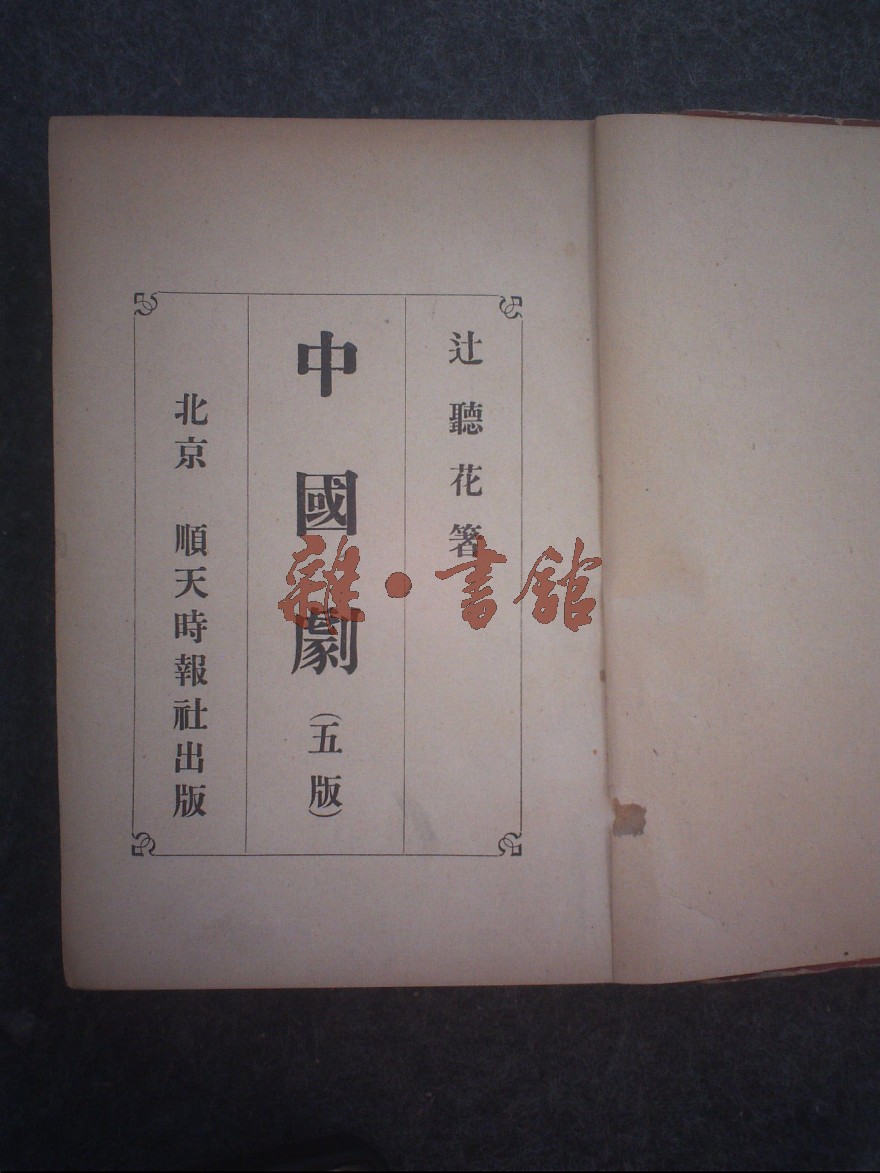 辻聽花箸
中國劇（五版）
北京 順天時報社出版
雜·書館